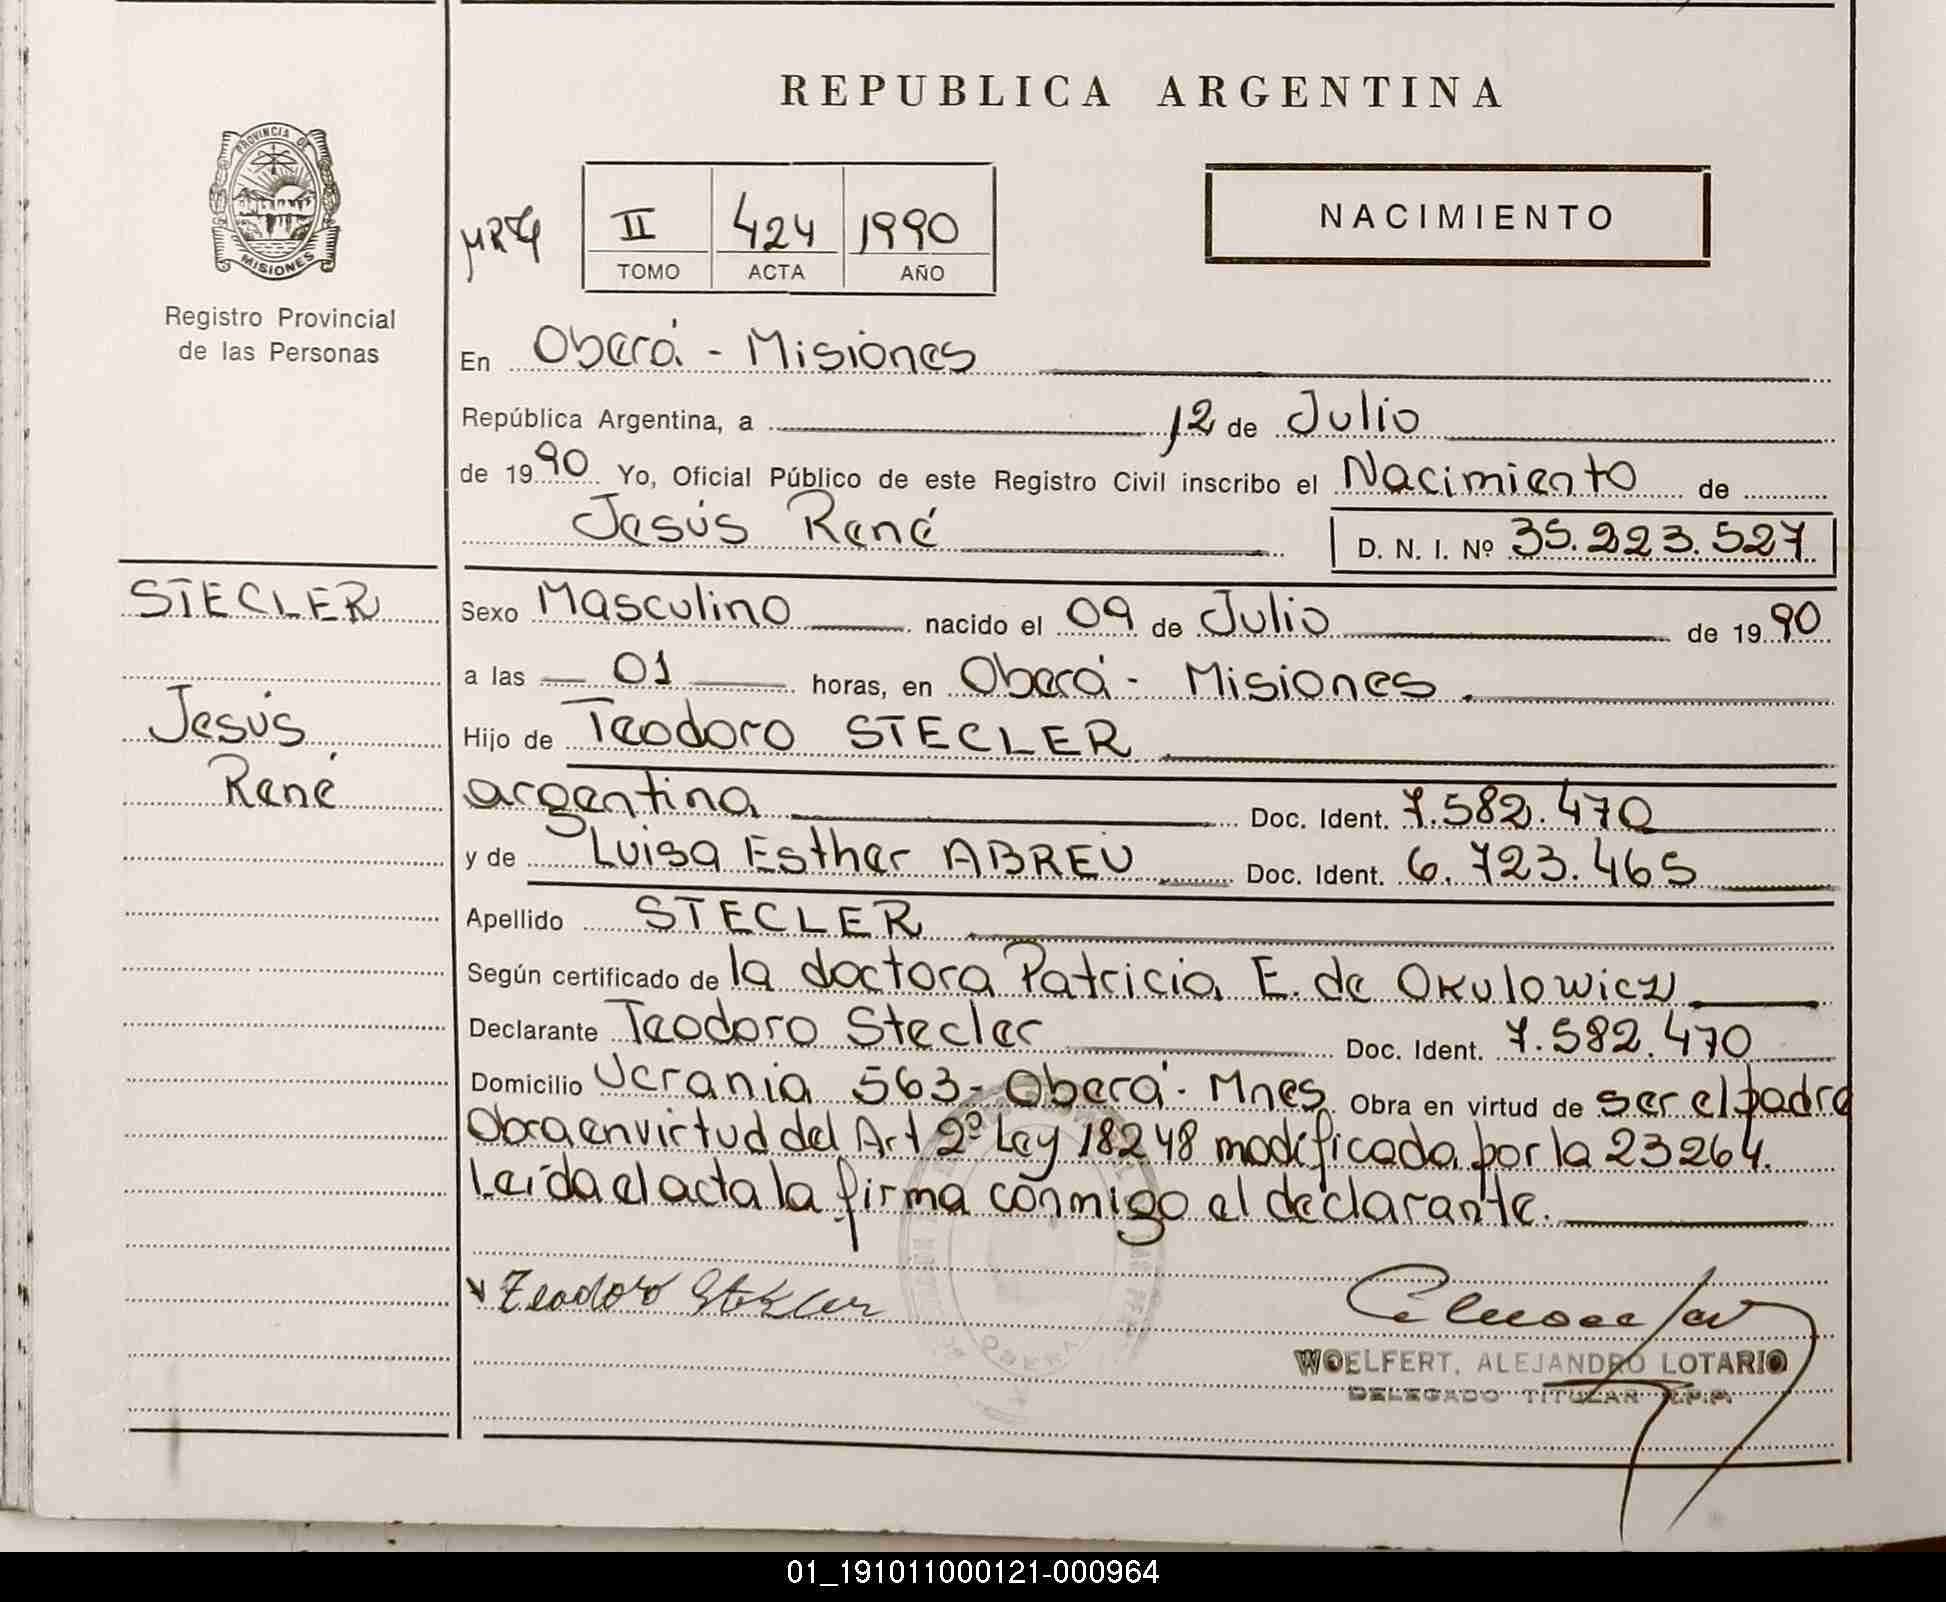 REPUBLICA ARGENTINA
PROVINCIA DE
MISIONES
Registro Provincial
de las Personas
II 424 1990
TOMO ACTA AÑO
NACIMIENTO
En Oberá - Misiones
República Argentina, a 12 de Julio
de 1990 Yo, Oficial Público de este Registro Civil inscribo el Nacimiento de
Jesús René D. N. I. Nº 35.223.527
STECLER
Jesús
René
Sexo Masculino nacido el 09 de Julio de 1990
a las 01 horas, en Oberá - Misiones.
Hijo de Teodoro STECLER
argentina Doc. Ident. 7.582.470
y de Luisa Esther ABREU Doc. Ident. 6.723.465
Apellido STECLER
Según certificado de la doctora Patricia E. de Okulowicz
Declarante Teodoro Stecler Doc. Ident. 7.582.470
Domicilio Ucrania 563 - Oberá - Mnes Obra en virtud de ser el padre
Obra en virtud del Art 2º Ley 18248 modificada por la 23264.
Leída el acta la firma conmigo el declarante.
Teodoro Stekler
WOELFERT, ALEJANDRO LOTARIO
DELEGADO TITULAR R.P.P.
01_191011000121-000964